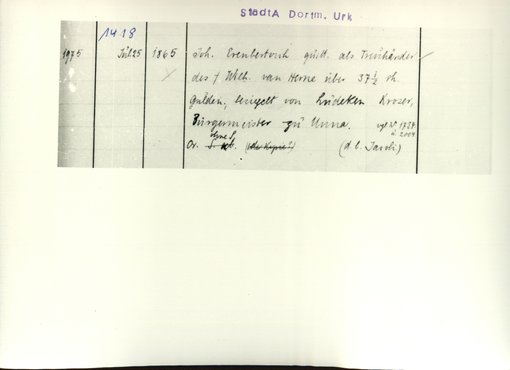 StadtA Dortm. Urk
1418
1975 Jul 25 1865 Joh. Erenbertouh quitt. als Treuhänder
des † Wilh. van Herne über 37 ½ rh.
Gulden, besiegelt von Lüdeken Kroser,
Bürgermeister zu Unna. vgl. Nr. 1727
ohne S. u. 2004
Or. (d. l. Jacobi)